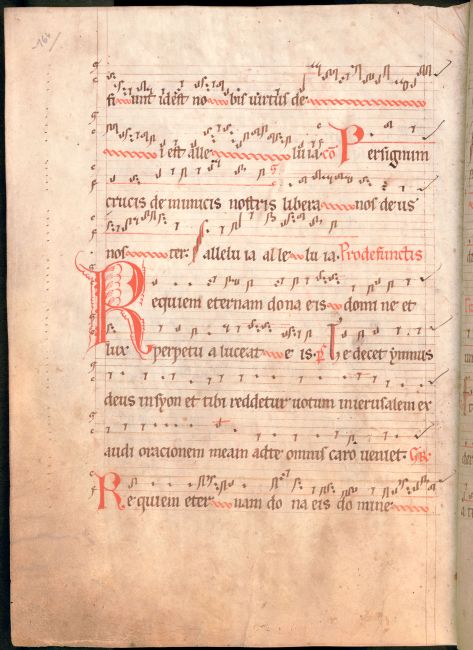 fi unt id est no bis virtus de
i est alle lu ia. co Per signum
crucis de inimicis nostris libera nos deus
nos ter. allelu ia al le lu ia. Pro defunctis
Requiem eternam dona eis domine et
lux perpetu a luceat e is. Te decet ymnus
deus in syon et tibi reddetur votum in ierusalem ex
audi oracionem meam ad te omnis caro veniet. Gr.
Re quiem eter nam do na eis do mine